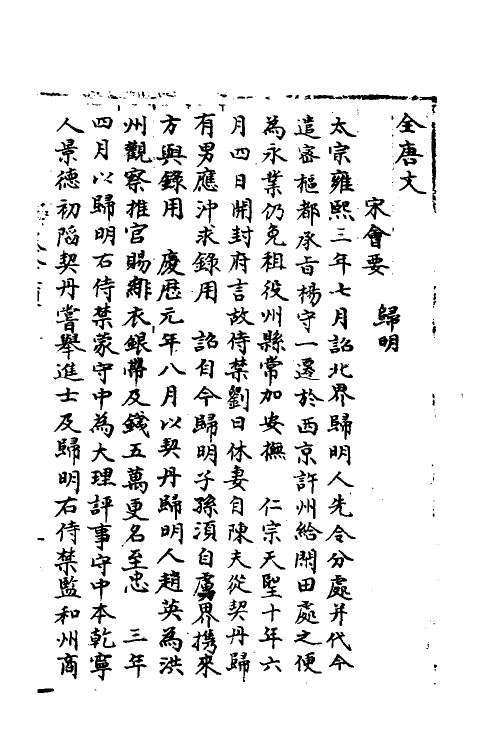 全唐文
宋會要　歸明
太宗雍熙三年七月詔北界歸明人先令分處并代今
遣密樞都承旨楊守一遷於西京許州給閑田處之便
為永業仍免租役州縣常加安撫　仁宗天聖十年六
月四日開封府言故侍禁劉日休妻自陳夫從契丹歸
有男應沖求錄用　詔自今歸明子孫湏自虜界携來
方與錄用　慶歷元年八月以契丹歸明人趙英為洪
州觀察推官賜緋衣銀帶及錢五萬更名至忠　三年
四月以歸明右侍禁蒙守中為大理評事守中本乾寧
人景德初陷契丹嘗舉進士及歸明右侍禁監和州商